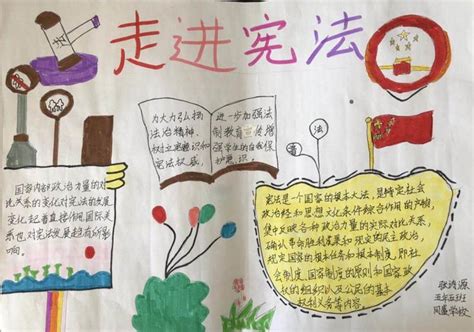 走进宪法
为大力弘扬
法治精神,
树立宪意识和
宪法权威,
进一步加强法
制教育宣传增
强学生的自我保
护意识。
普
法
国家内部政治力量的对
比关系的变化对宪法的发展
变化起着直接作用国际关
系也对宪法发展起有所影
响。
宪法是一个国家的根本大法,是特定社会
政治经和思想文化条件综合作用的产物,
集中反映各种政治力量的实际对比关系,
确认革命胜利成果和现实的民主政治,
规定国家的根本任务和根本制度,即社
会制度、国家制度的原则和国家政
权的组织以及公民的基本
权利义务等内容。
五年五班